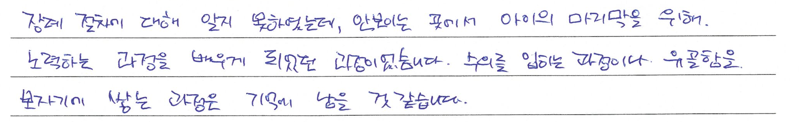 장례 절차에 대해 알지 못하였는데, 안보이는 곳에서 아이의 마지막을 위해.
노력하는 과정을 배우게 되었던 과정이었습니다. 수의를 입히는 과정이나 유골함을
보자기에 쌓는 과정은 기억에 남을 것 같습니다.